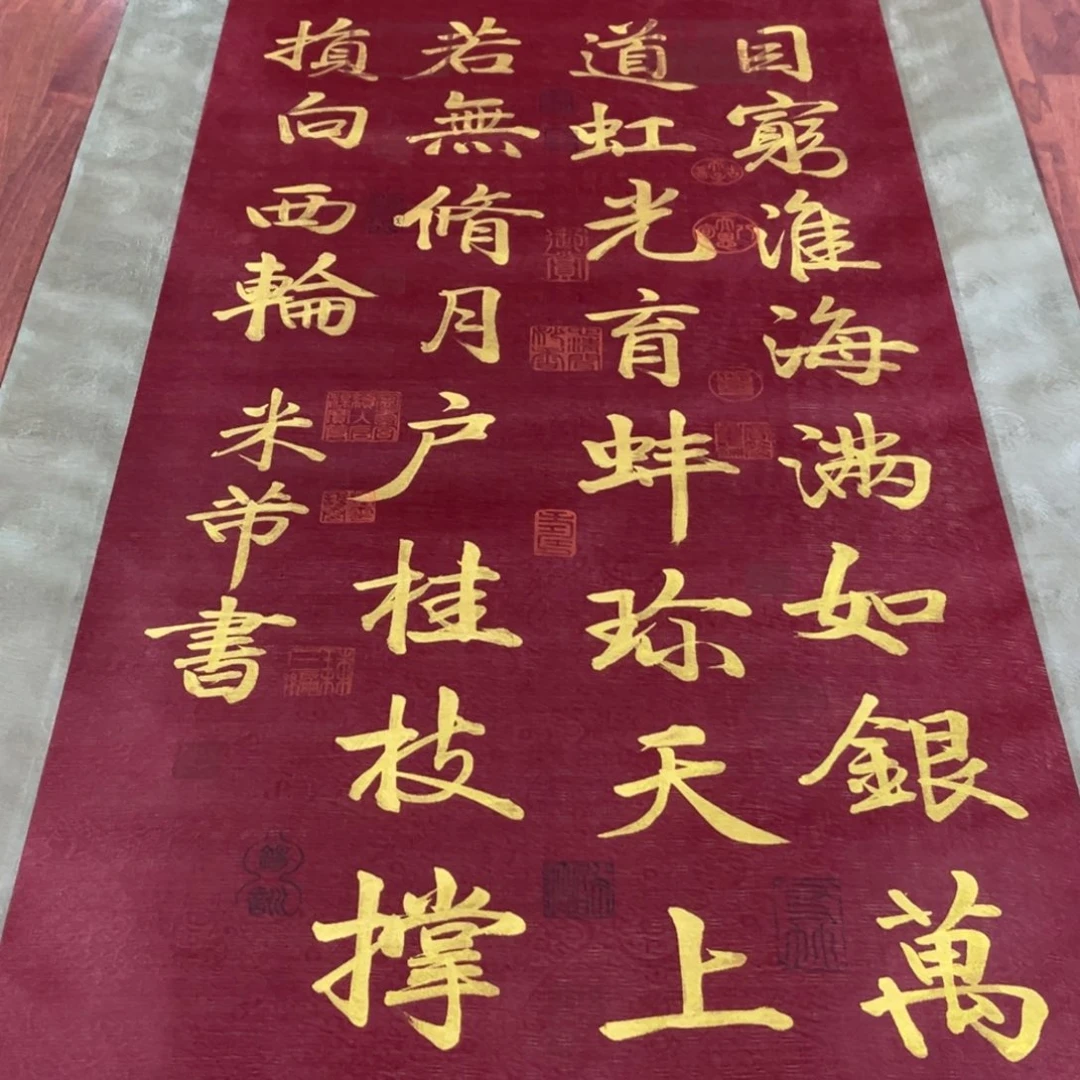 目窮淮海滿如銀萬
道虹光育蚌珍天上
若無脩月户桂枝撐
損向西輪
米芾書